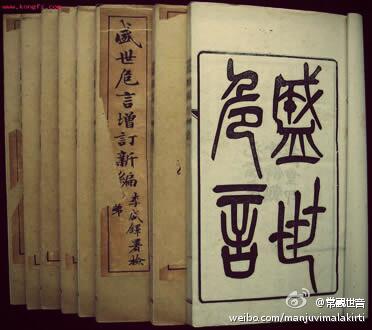 盛世
危言
盛世危言增訂新編
李盛鐸署檢
@常觀世音
weibo.com/manjuvimalakirti